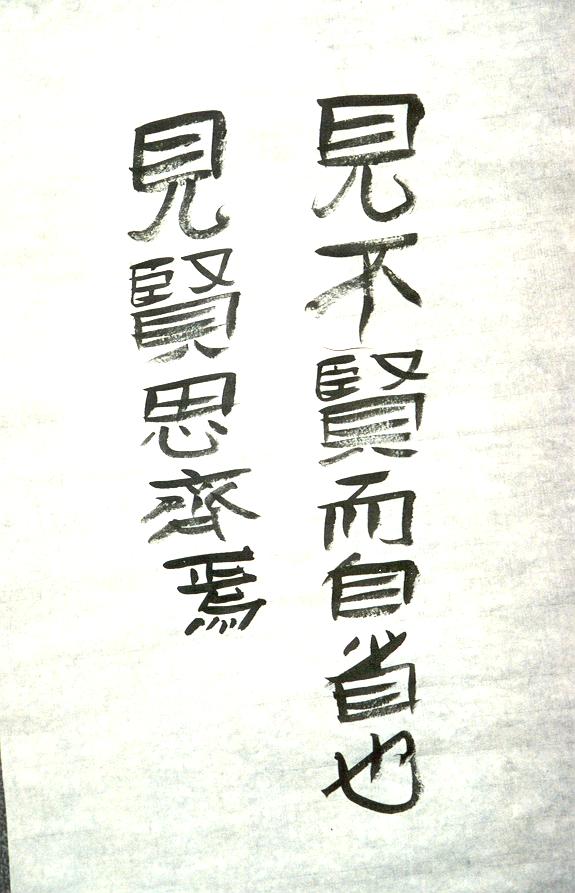 見賢思齊焉
見不賢而自省也